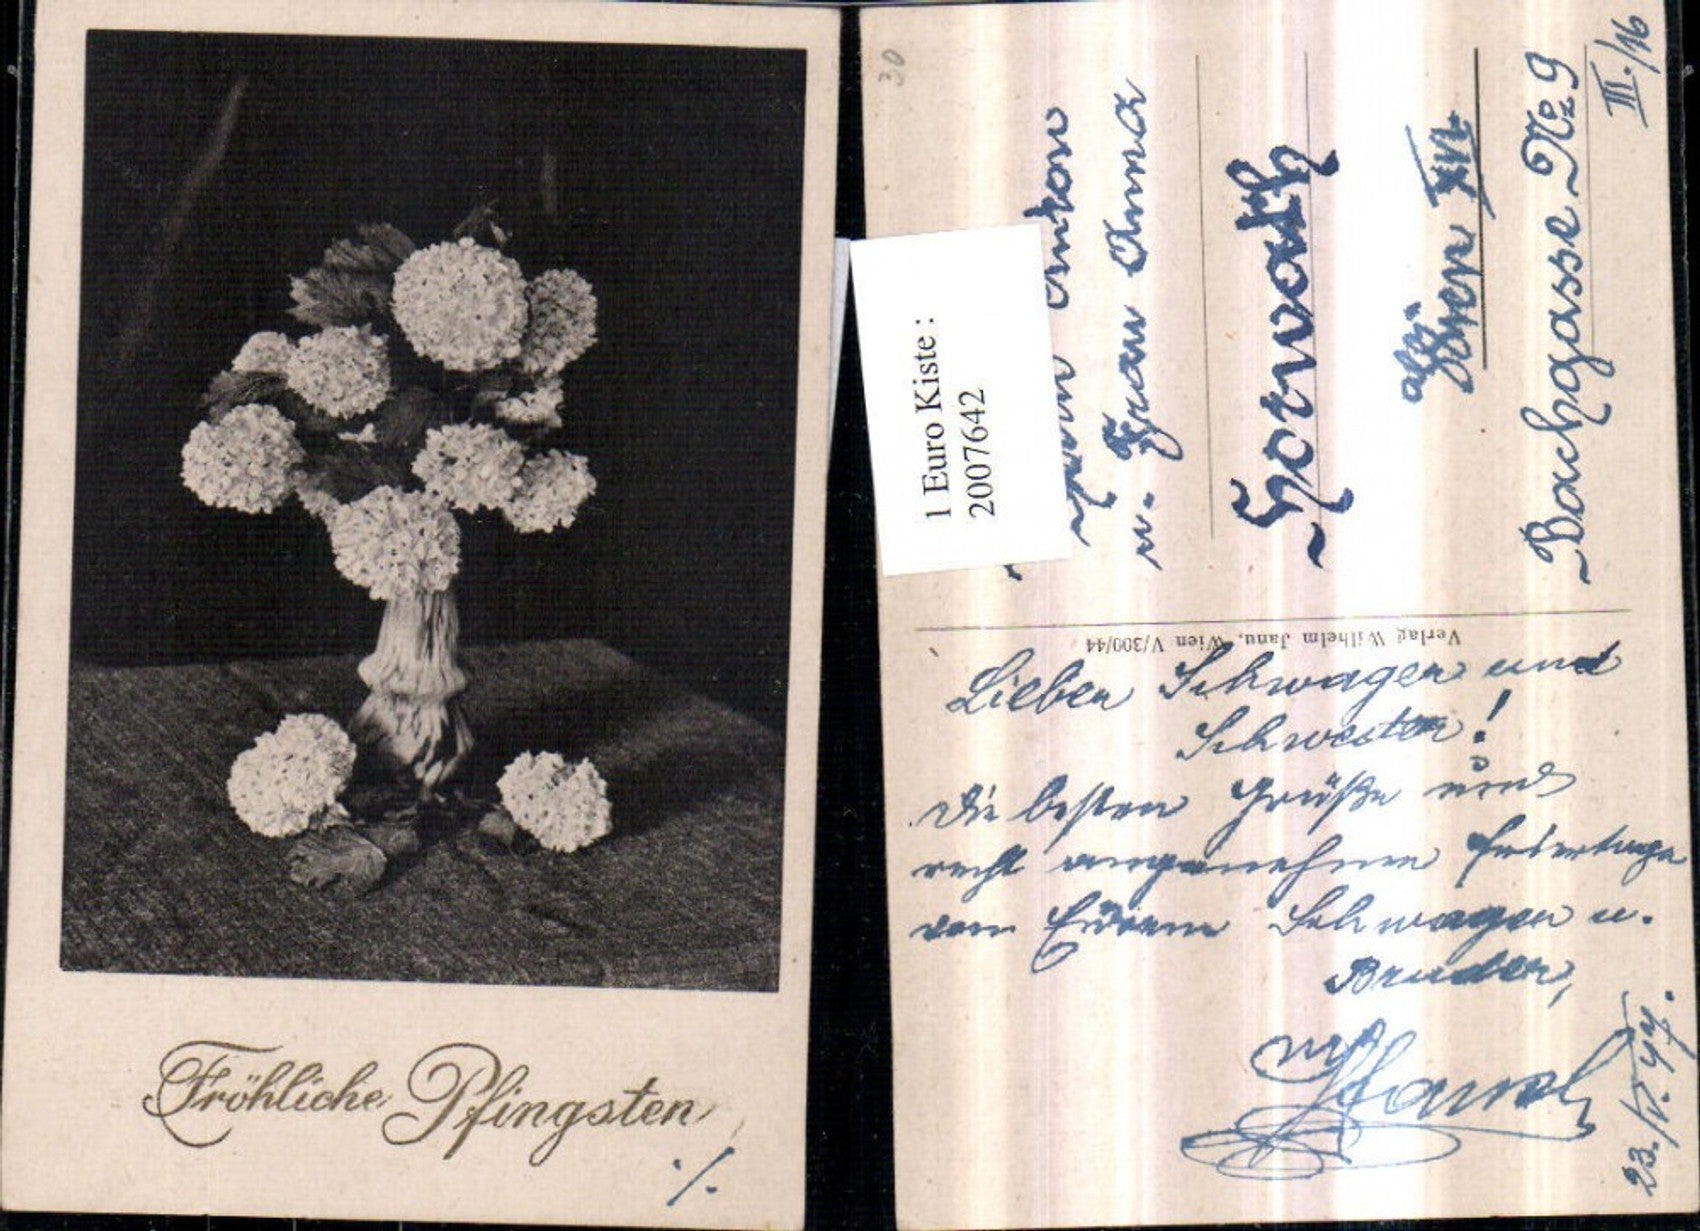 Fröhliche Pfingsten
./.
30
1 Euro Kiste :
2007642
Herrn Anton
u. Frau Anna
Horvath
Wien XVI.
Bachgasse № 9
III./16
Verlag Wilhelm Janu, Wien V/300/44
Lieber Schwager und
Schwester!
Die besten Grüße und
recht angenehme Feiertage
von Eurem Schwager u.
Bruder,
23./V. 44.